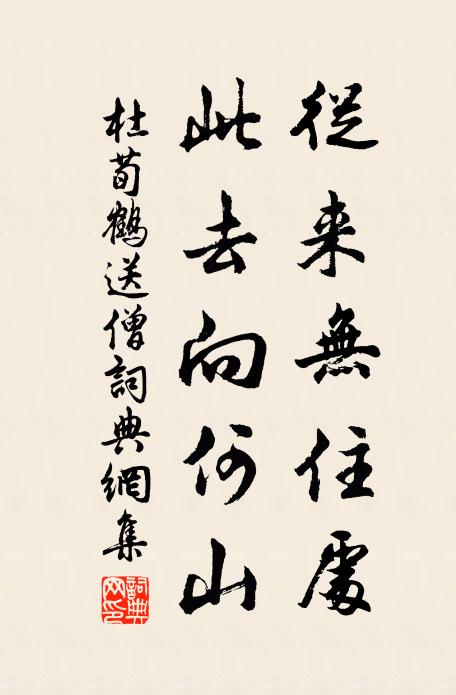 從来無住處
此去向何山
杜荀鶴送僧詞典網集
詞典网印